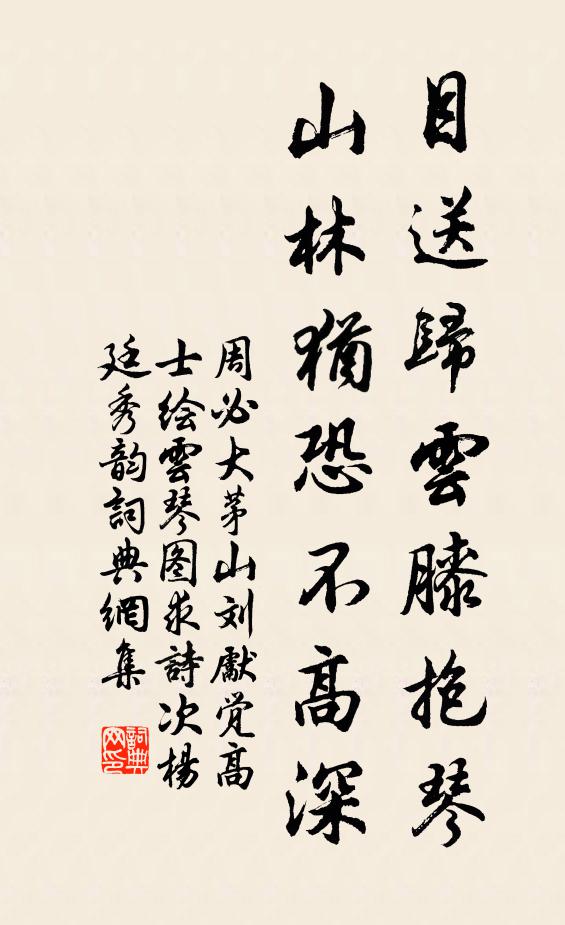 目送歸雲膝抱琴
山林猶恐不高深
周必大茅山刘獻觉高
士绘雲琴图求詩次楊
廷秀韵詞典網集
詞典网印